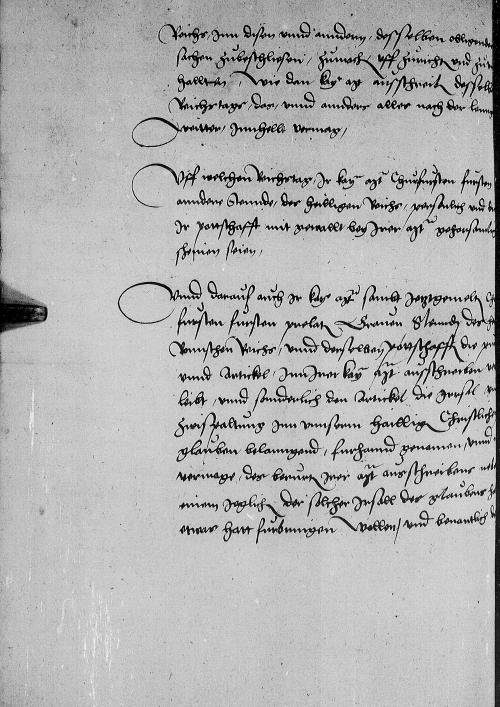 Reichs, Inn disen vnnd anndern, desselben obligenden
sachen zubeschliesen, zumach vff zuricht vnd zu
hallten, Wie dan kay mt ausschreib dessel
Reichstags, das, vnnd annders alles nach der leng
weitter, Innhellt vermag,
Uff welchen Reichstag, Ir kay mt Churfursten fursten
anndere Stennde, des heilligen Reichs, personlich vnd
Ir pottschafft mit gewallt bey Irer mt gehorsam
schinen seien,
Vnnd darauf auch Ir kay mt sambt Jetztgemelt
fursten fursten prelat Grauen Stennd des
Romischen Reichs, vnnd derselben pottschafft die
vnnd Artickel, Inn Irer kay mt ausschreiben
leibt, vnnd sonderlich den Artickel die Irsal
Zwispaltung Inn vnnserm haillig Christlich
glauben belanngend, furhannd genomen, vnnd
vermoge, des berurt Irer mt ausschreibens
einem Jeglich der solcher Irsall des glaubens
etwas hatt furbringen Wollen, vnd benantlich